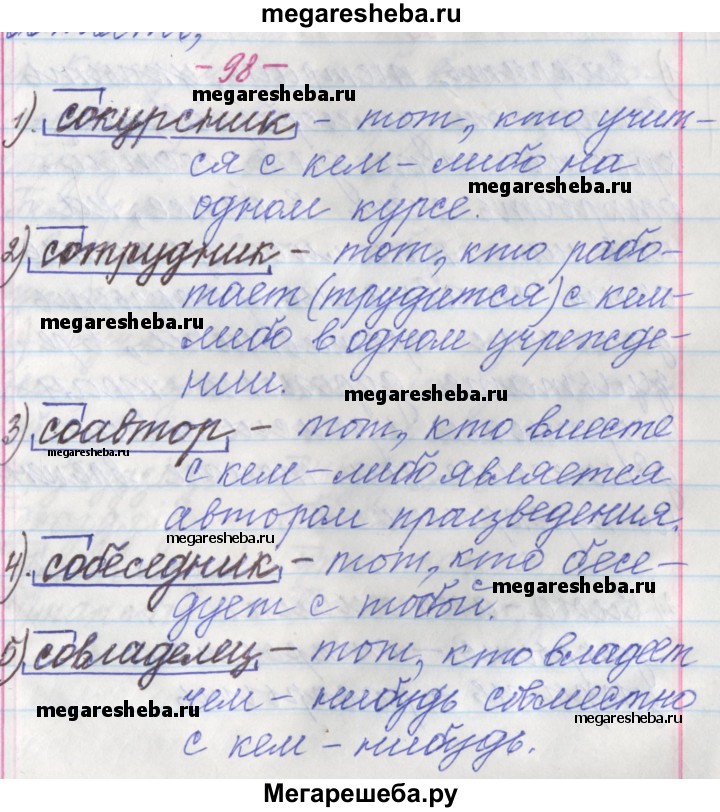 megaresheba.ru
- 98 -
megaresheba.ru
1). сокурсник - тот, кто учит-
ся с кем-либо на
megaresheba.ru
одном курсе.
2) сотрудник - тот, кто рабо-
тает (трудится) с кем-
megaresheba.ru
либо в одном учрежде-
нии.
megaresheba.ru
3) соавтор - тот, кто вместе
megaresheba.ru
с кем-либо является
автором произведения.
megaresheba.ru
4). собеседник - тот, кто бесе-
megaresheba.ru
дует с тобой.
5) совладелец - тот, кто владеет
megaresheba.ru
чем-нибудь совместно
megaresheba.ru
с кем-нибудь.
Мегарешеба.ру